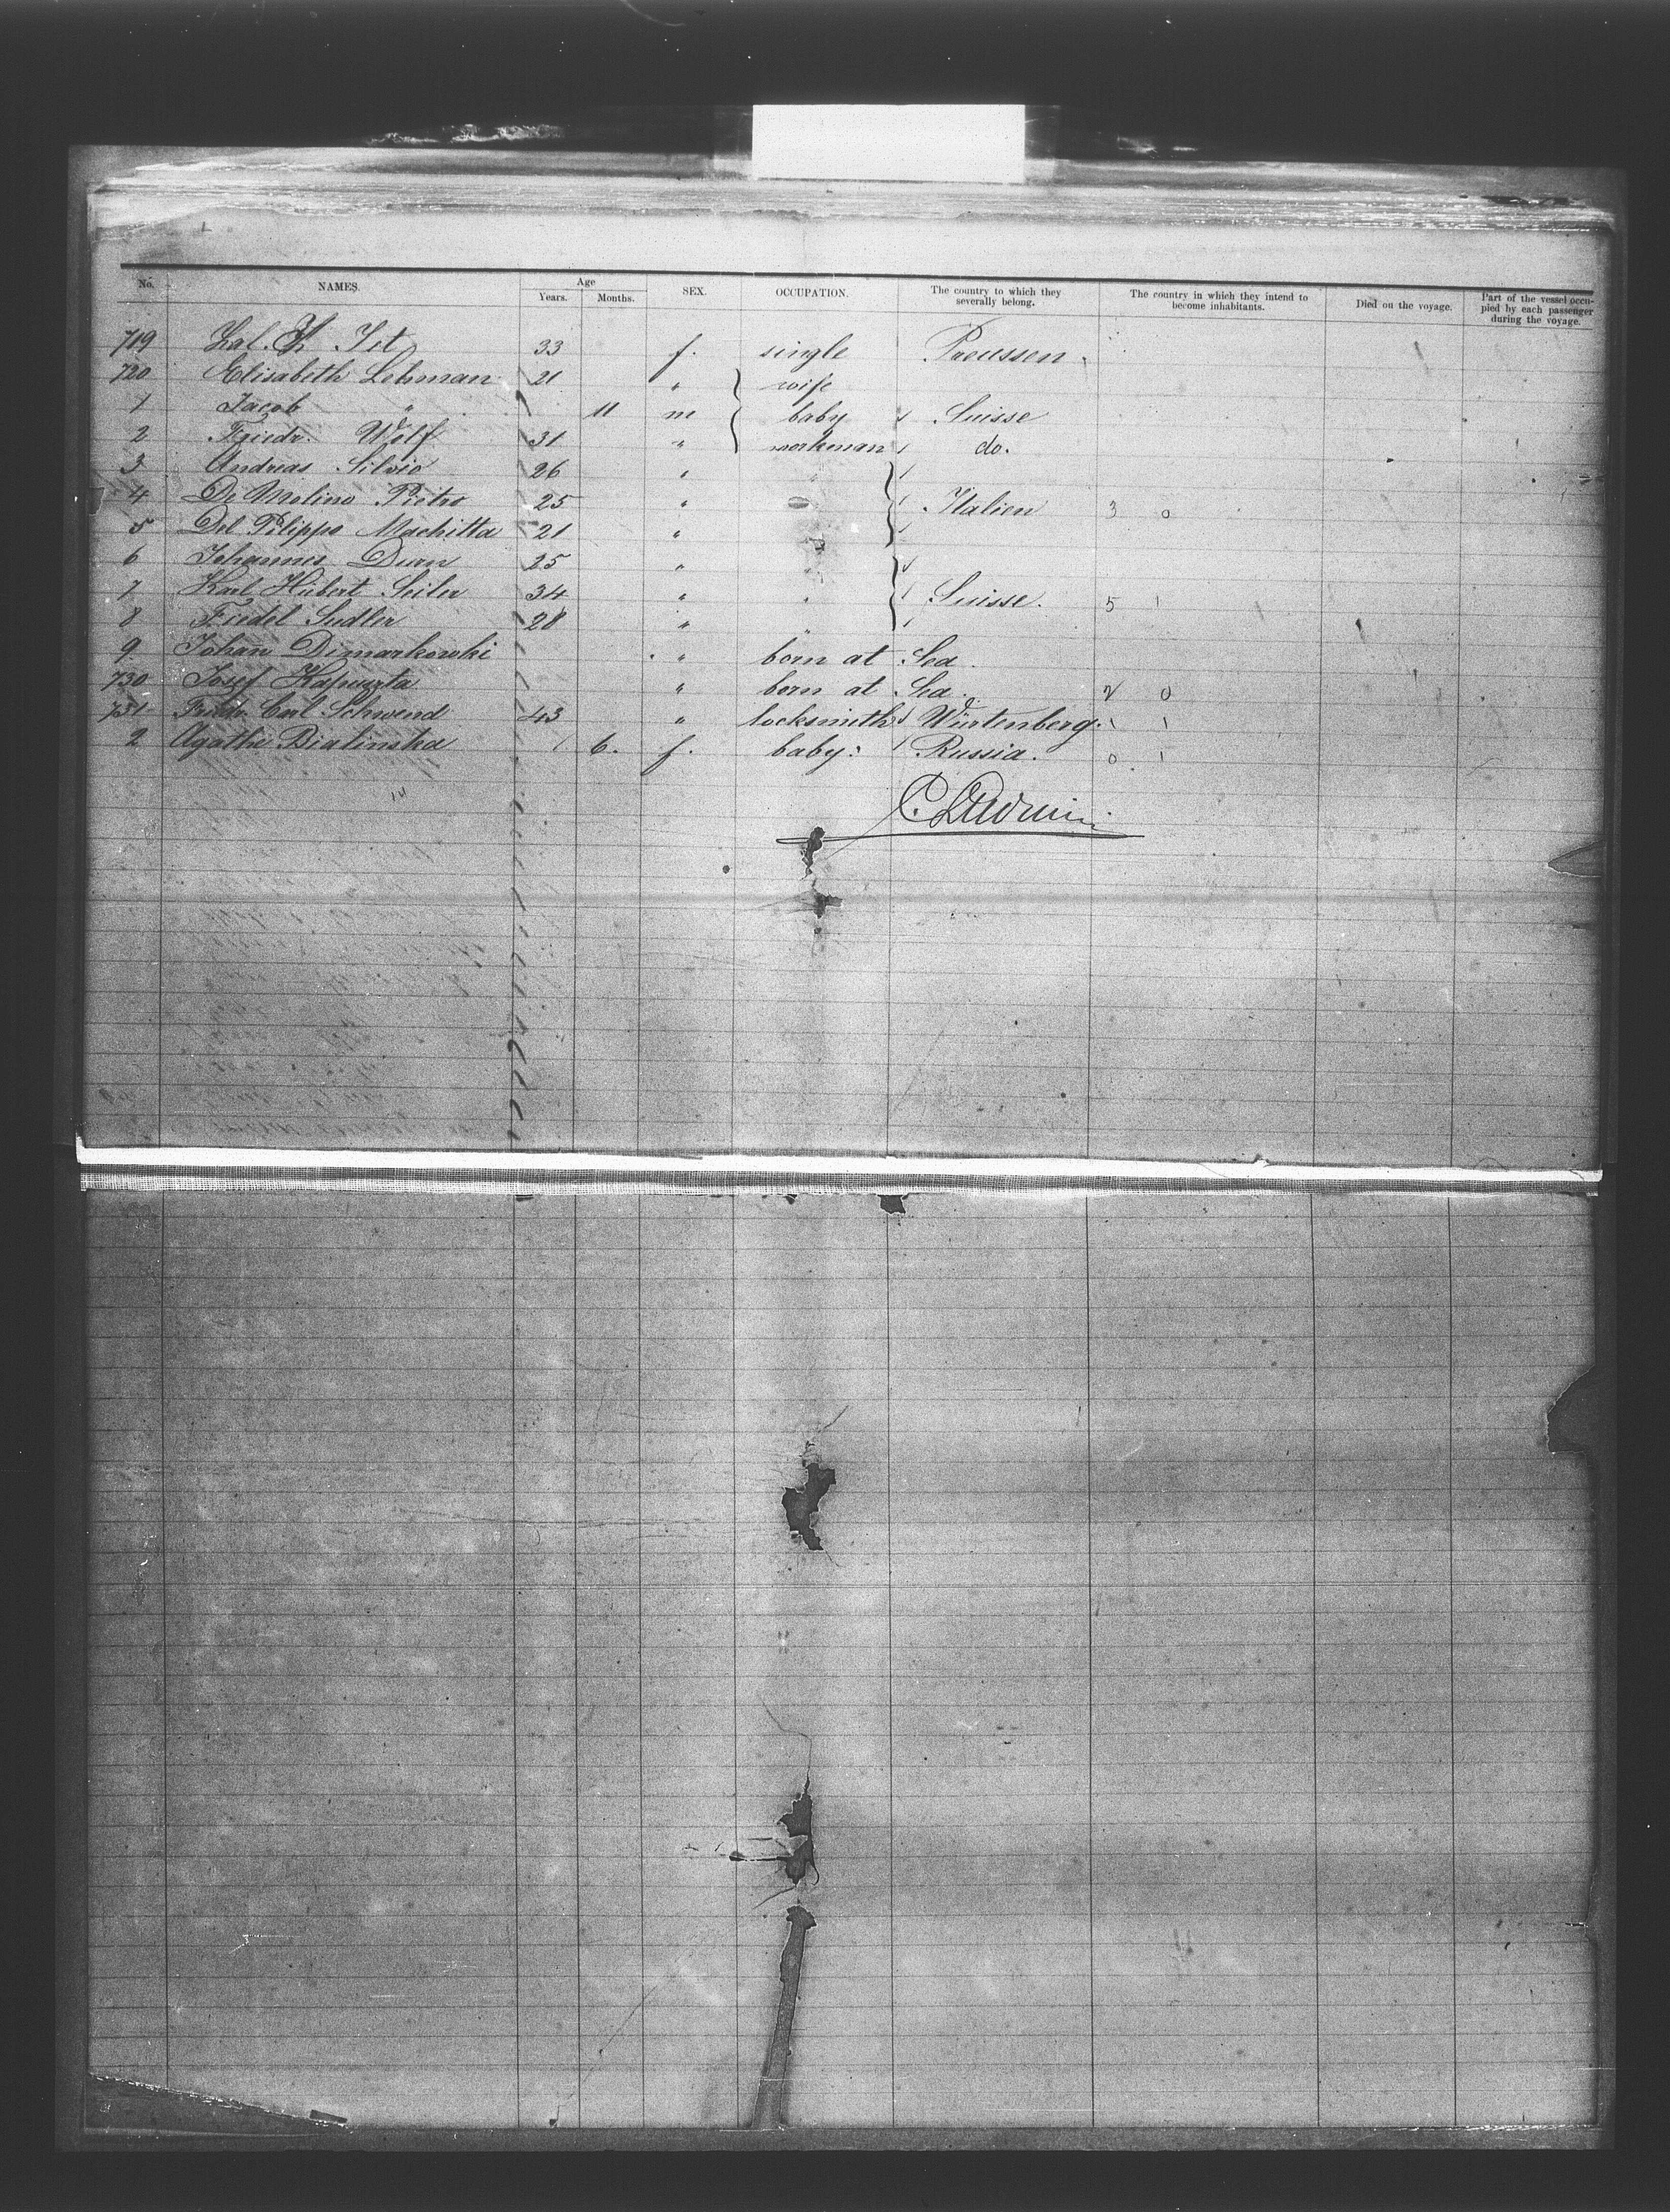 No. NAMES. Age Years. Months. SEX. OCCUPATION. The country to which they severally belong. The country in which they intend to become inhabitants. Died on the voyage. Part of the vessel occupied by each passenger during the voyage.
719 33 f. single Preussen.
720 Elisabeth Lehman 21 " wife
1 Jacob " 11 m baby Suisse
2 Friedr. Wolf 31 " workman do.
3 Andreas Silvio 26 "
4 De Molino Pietro 25 " Italien 3 0
5 Del Pilippo Machitta 21 "
6 Johannes Durn 25 "
7 Karl Hubert Seiler 34 " " Suisse. 5 1
8 Fiedel Sudler 28 " "
9 Johan Dimarkowski " born at Sea.
730 Josef " born at Sea. 2 0
731 Friedr. Carl Schwend 43 " locksmith Würtenberg. 1 1
2 Agathe Bialinska 6. f. baby: Russia. 0 1